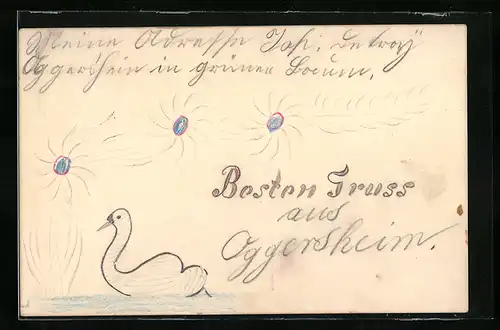 Meine Adresse Joh. Detroy
Oggersheim in grüner Baum.
Besten Gruss
aus
Oggersheim.